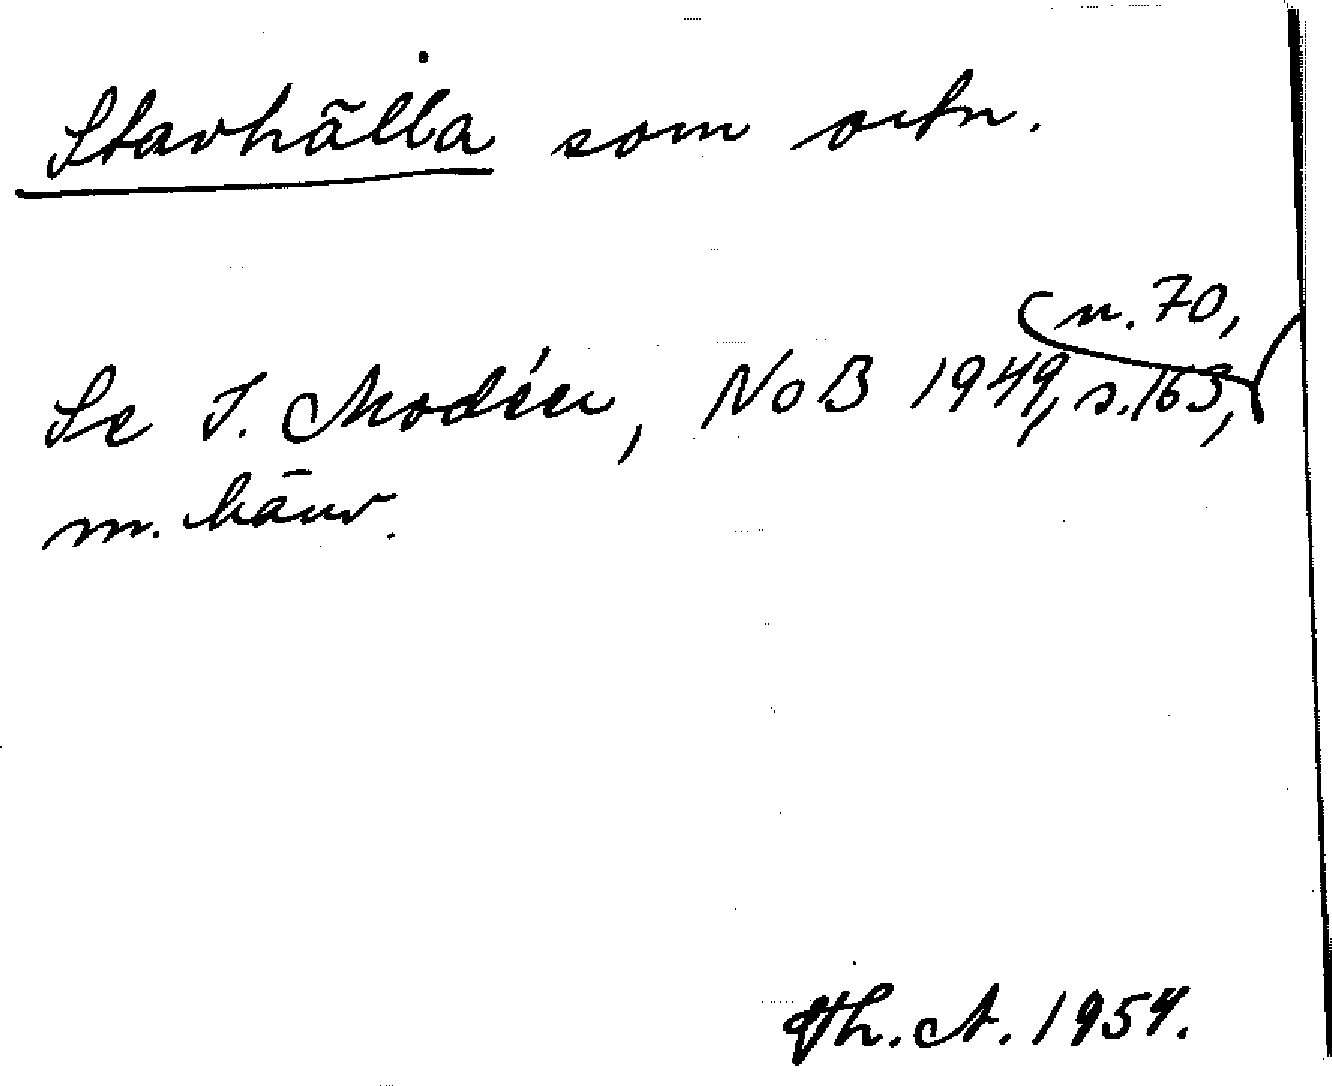 Stavhälla som ortn.
Se I. Modéer, NoB 1949, s. 163, n. 70,
m. hänv.
Th. A. 1954.